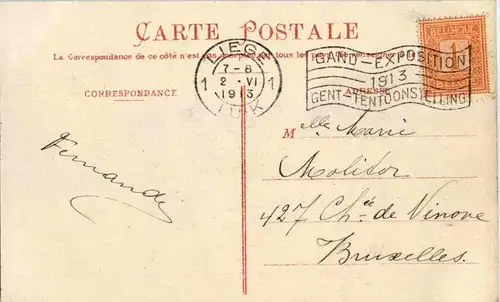 CARTE POSTALE
La Correspondance de ce côté n'est pas
tous les pays
LIEGE
7-8
1 2 VI 1
1913
LUIK
GAND-EXPOSITION
1913
GENT-TENTOONSTELLING
BELGIQUE
1
CORRESPONDANCE
ADRESSE
Fernande
Melle Marie
Molitor
427 Chée de Ninove
Bruxelles.